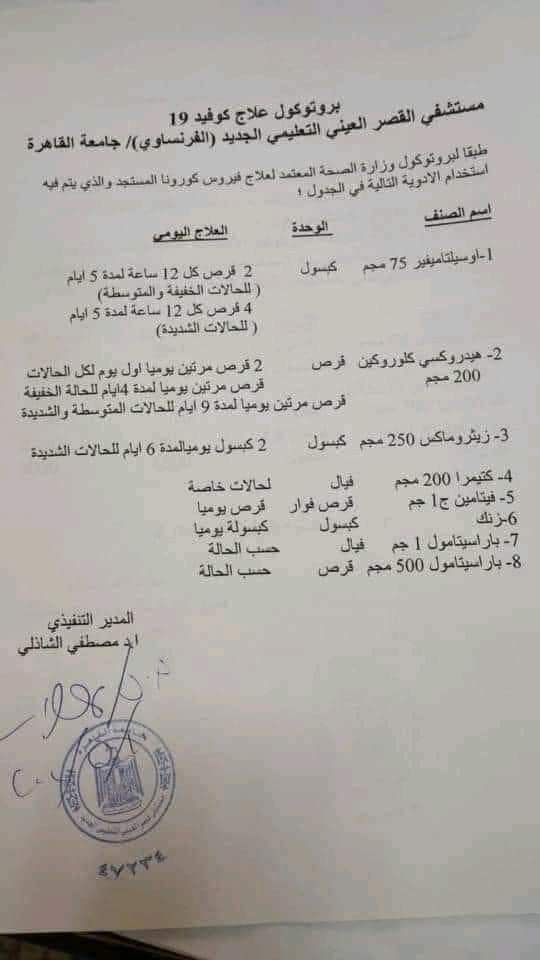 بروتوكول علاج كوفيد 19
مستشفي القصر العيني التعليمي الجديد (الفرنساوي)/ جامعة القاهرة
طبقا لبروتوكول وزارة الصحة المعتمد لعلاج فيروس كورونا المستجد والذي يتم فيه
استخدام الادوية التالية في الجدول ؛
اسم الصنف الوحدة العلاج اليومي
1-اوسيلتاميفير 75 مجم كبسول 2 قرص كل 12 ساعة لمدة 5 ايام
( للحالات الخفيفة والمتوسطة)
4 قرص كل 12 ساعة لمدة 5 ايام
( للحالات الشديدة)
2- هيدروكسي كلوروكين قرص 2 قرص مرتين يوميا اول يوم لكل الحالات
200 مجم قرص مرتين يوميا لمدة 4ايام للحالة الخفيفة
قرص مرتين يوميا لمدة 9 ايام للحالات المتوسطة والشديدة
3- زيثروماكس 250 مجم كبسول 2 كبسول يوميالمدة 6 ايام للحالات الشديدة
4- كتيمرا 200 مجم فيال لحالات خاصة
5- فيتامين ج1 جم قرص فوار قرص يوميا
6-زنك كبسول كبسولة يوميا
7- باراسيتامول 1 جم فيال حسب الحالة
8- باراسيتامول 500 مجم قرص حسب الحالة
المدير التنفيذي
ا.د مصطفي الشاذلي
جامعة القاهرة